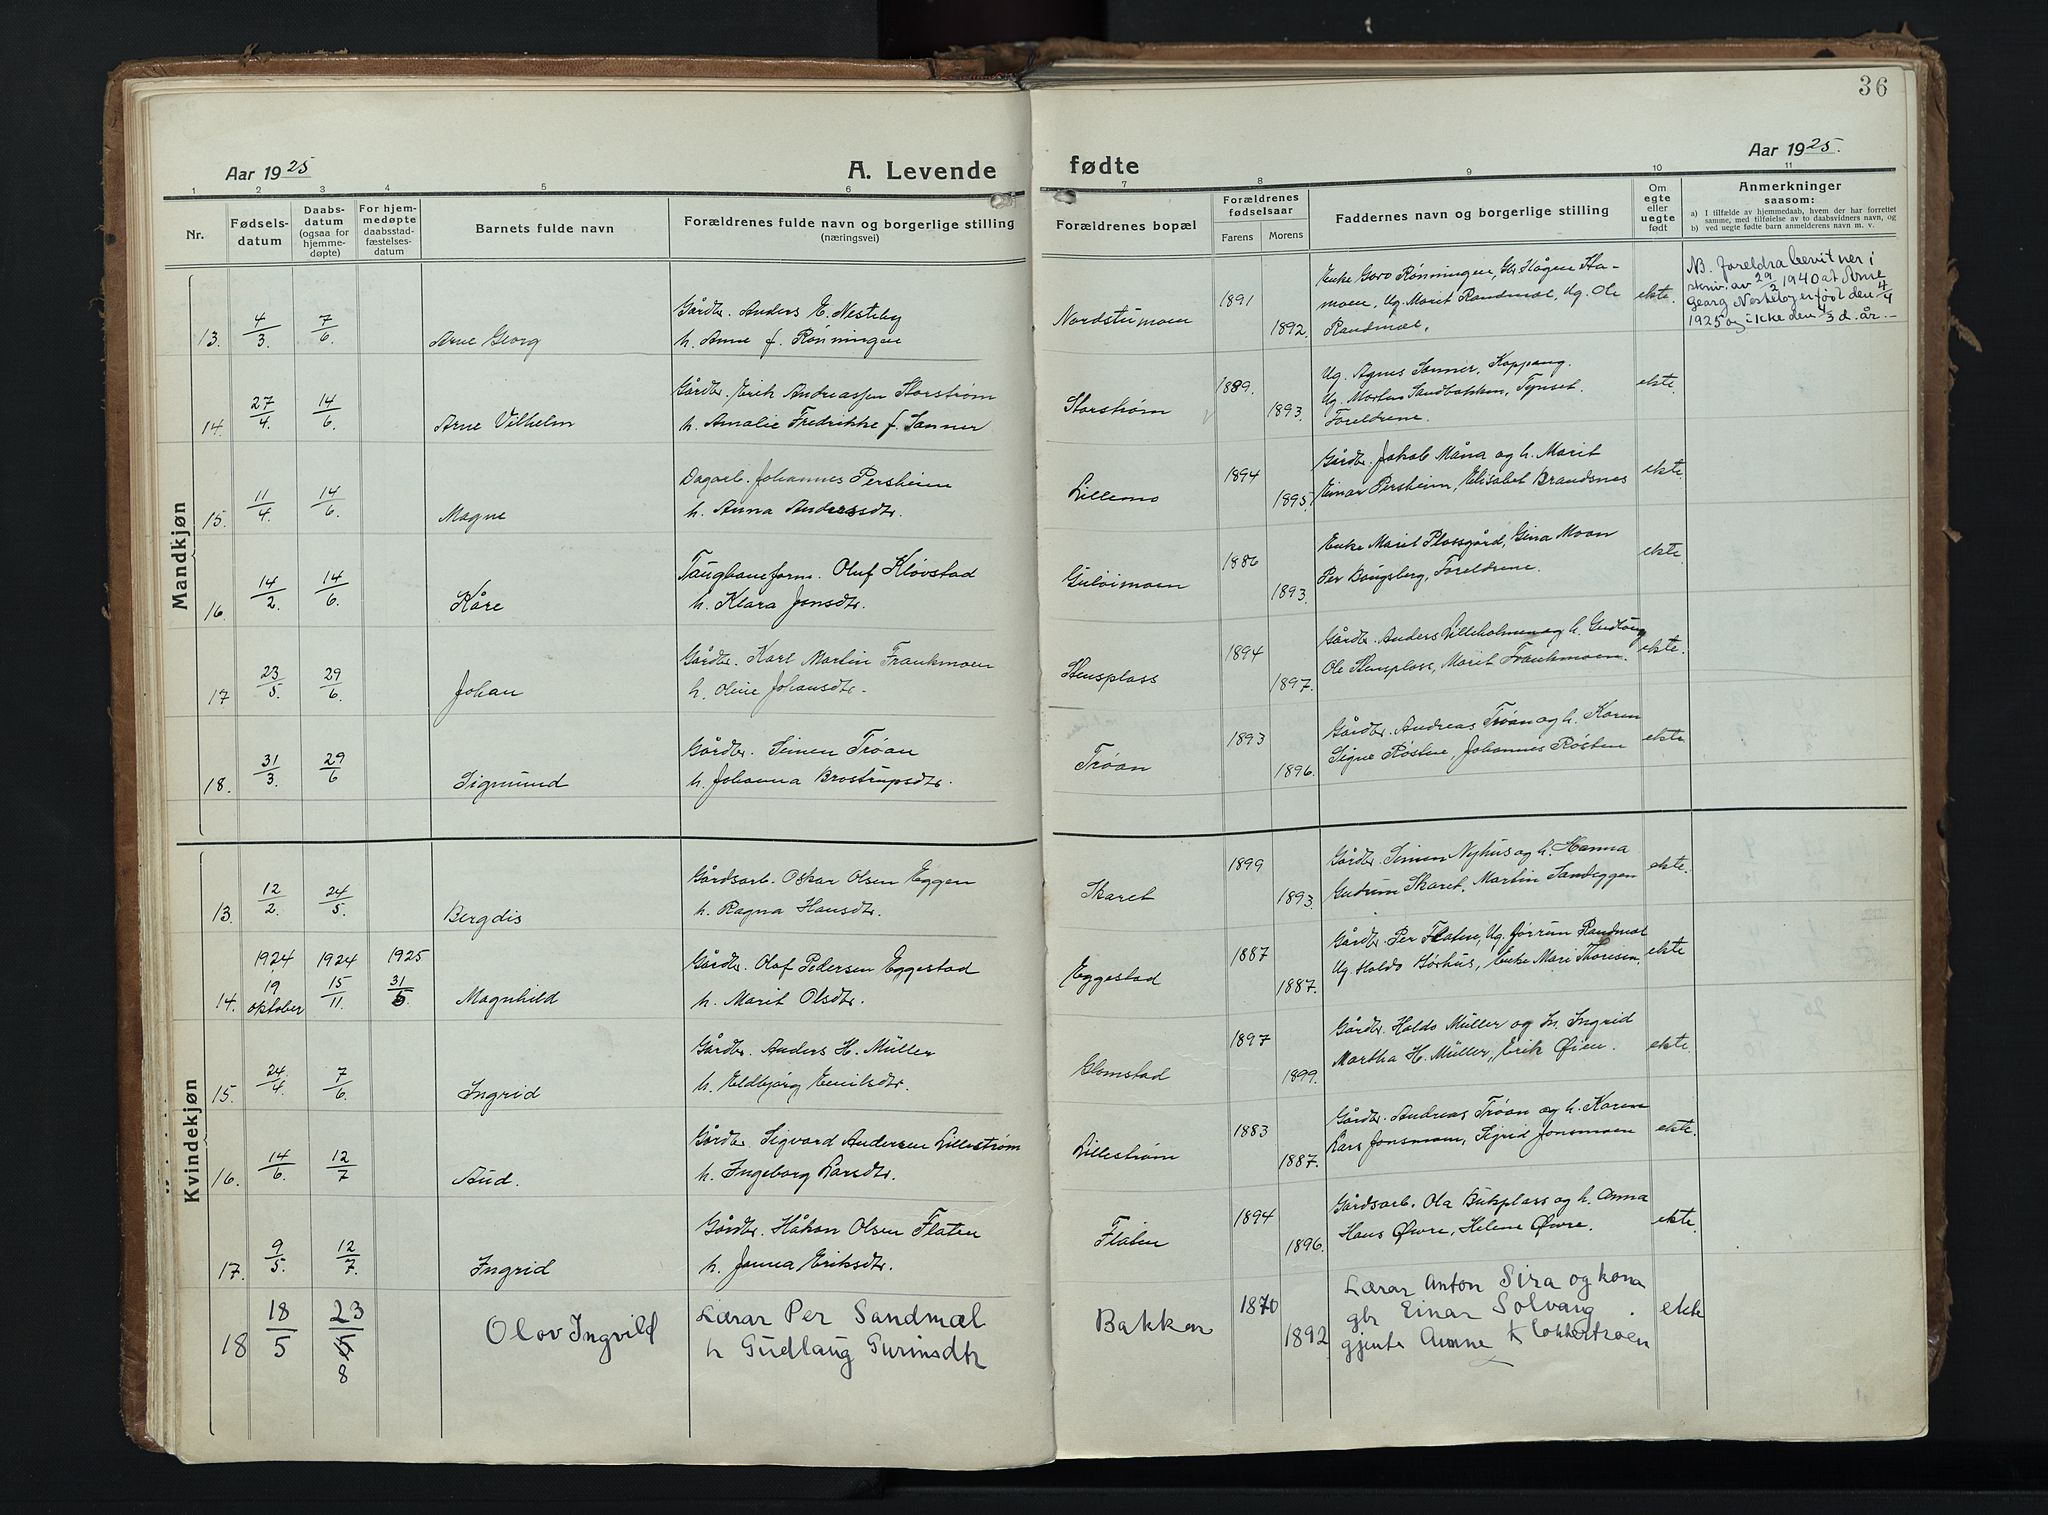 36
Aar 1925
A. Levende
fødte
Aar 1925.
1 2 3 4 5 6 7 8 9 10 11
Nr.
Fødsels-
datum
Daabs-
datum
(ogsaa for
hjemme-
døpte)
For hjem-
medøpte
daabsstad-
fæstelses-
datum
Barnets fulde navn
Forældrenes fulde navn og borgerlige stilling
(næringsvei)
Forældrenes bopæl
Forældrenes
fødselsaar
Farens Morens
Faddernes navn og borgerlige stilling
Om
egte
eller
uegte
født
Anmerkninger
saasom:
a) I tilfælde av hjemmedaab, hvem der har forrettet
samme, med tilføielse av to daabsvidners navn, og
b) ved uegte fødte barn anmelderens navn m. v.
Mandkjøn
13. 4/3 7/6 Arne Georg
Gårdbr. Anders E. Nesteby
h. Anne f. Rønningen
Nordstumoen 1891 1892.
Enke Goro Rønningen, Gbr Hågen Ha-
moen, Ug. Marit Randmæl, Ug. Ole
Randmæl,
ekte.
NB. Foreldra bevitner i
skriv. av 29/2 1940 at Arne
Georg Nesteby er født den 4/4
1925 og ikke den 4/3 d. år.
14. 27/4 14/6 Arne Vilhelm
Gårdbr. Erik Andreassen Storstrøm
h. Amalie Fredrikke f. Sanner
Storstrøm 1889. 1893.
Ug. Agnes Sanner, Koppang.
Ug. Morten Sandbakken, Tynset.
Foreldrene.
ekte.
15. 11/4 14/6 Magne
Dagarb. Johannes Persheim
h. Anna Andersdtr.
Lillemo 1894 1895.
Gårdbr. Jakob Mana og h. Marit
Einar Persheim, Elisabet Brandsnes
ekte.
16. 14/2. 14/6. Kåre
Taugbaneform. Oluf Kløvstad
h. Klara Jonsdtr.
Guløimoen 1886 1893.
Enke Marit Plassgård, Gina Moan
Per Bangsberg, Foreldrene.
ekte.
17 23/5. 29/6 Johan
Gårdbr. Karl Martin Frankmoen
h. Oline Johansdtr.
Stensplass 1894 1897.
Gårdbr. Anders Lilleholmen og h. Gudlaug
Ole Stensplass, Marit Frankmoen.
ekte.
18. 31/3. 29/6 Sigmund
Gårdbr. Simen Trøan
h. Johanna Brostrupsdtr.
Trøan 1893 1896.
Gårdbr. Andreas Trøan og h. Karen
Signe Røsten, Johannes Røsten
ekte.
Kvindekjøn
13. 12/2. 24/5. Bergdis
Gårdsarb. Oskar Olsen Eggen
h. Ragna Hansdtr.
Skaret 1899 1893.
Gårdbr. Simen Nyhus og h. Hanna
Gudrun Skaret, Martin Sandeggen
ekte.
14. 1924 19 oktober 1924 15/11 1925 31/5 Magnhild
Gårdbr. Olaf Pedersen Eggestad
h. Marit Olsdtr.
Eggestad 1887 1887.
Gårdbr. Per Flaten, Ug. Jørrun Randmæl
Ug. Haldo Hørhus, Enke Mari Thoresen.
ekte
15. 24/4 7/6. Ingrid
Gårdbr. Anders H. Müller
h. Eldbjørg Emilsdtr.
Glomstad 1897 1899.
Gårdbr. Haldo Müller og h. Ingrid
Martha H. Müller, Erik Øien.
ekte.
16. 14/6. 12/7 Aud.
Gårdbr. Sigvard Andersen Lillestrøm
h. Ingeborg Larsdtr.
Lillestrøm 1883 1887.
Gårdbr. Andreas Trøan og h. Karen
Lars Jonsmoen, Sigrid Jonsmoen
ekte.
17. 9/5. 12/7. Ingrid
Gårdbr. Håkon Olsen Flaten
h. Janna Eriksdtr.
Flaten 1894 1896.
Gårdsarb. Ola Bukplass og h. Anna
Hans Øvre, Helene Øvre.
ekte.
18 18/5 23/8 Olov Ingvild
Lærar Per Sandmæl
h Gudlaug Gurinsdtr
Bakken 1870 1892
Lærar Anton Sira og kona
gbr Einar Solvang
gjente Aumne Klokkertrøen
ekte